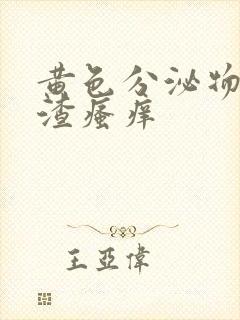 黄色分泌物
渣瘙痒
王亚伟